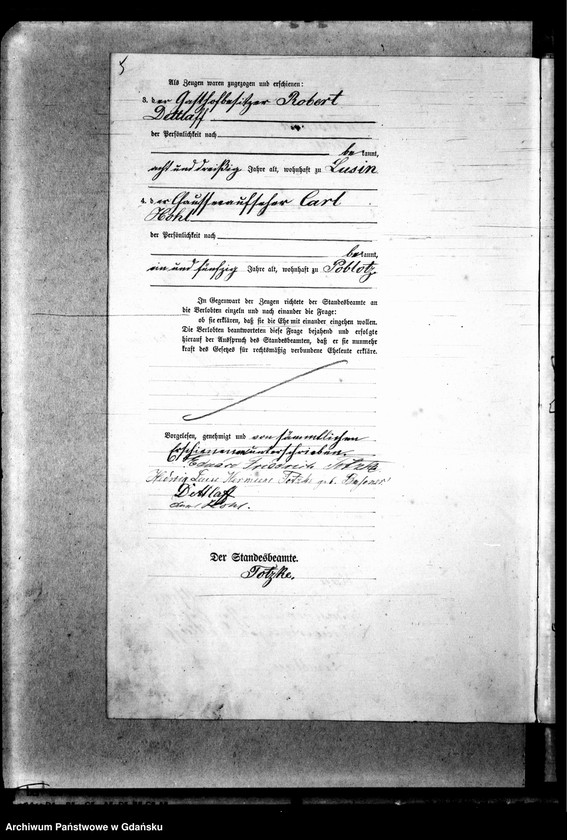 5
Als Zeugen waren zugezogen und erschienen:
3. der Gasthofbesitzer Robert
Dettlaff
der Persönlichkeit nach
bekannt,
acht und dreißig Jahre alt, wohnhaft zu Lusin
4. der Chausseeaufseher Carl
Kohl
der Persönlichkeit nach
bekannt,
ein und fünfzig Jahre alt, wohnhaft zu Poblotz
In Gegenwart der Zeugen richtete der Standesbeamte an
die Verlobten einzeln und nach einander die Frage:
ob sie erklären, daß sie die Ehe mit einander eingehen wollen.
Die Verlobten beantworteten diese Frage bejahend und erfolgte
hierauf der Ausspruch des Standesbeamten, daß er sie nunmehr
kraft des Gesetzes für rechtmäßig verbundene Eheleute erkläre.
Vorgelesen, genehmigt und von sämmtlichen
Erschienenen unterschrieben.
Friedrich Totzke
Luise Totzke geb.
Dettlaff
Carl Kohl.
Der Standesbeamte.
Totzke.
Archiwum Państwowe w Gdańsku